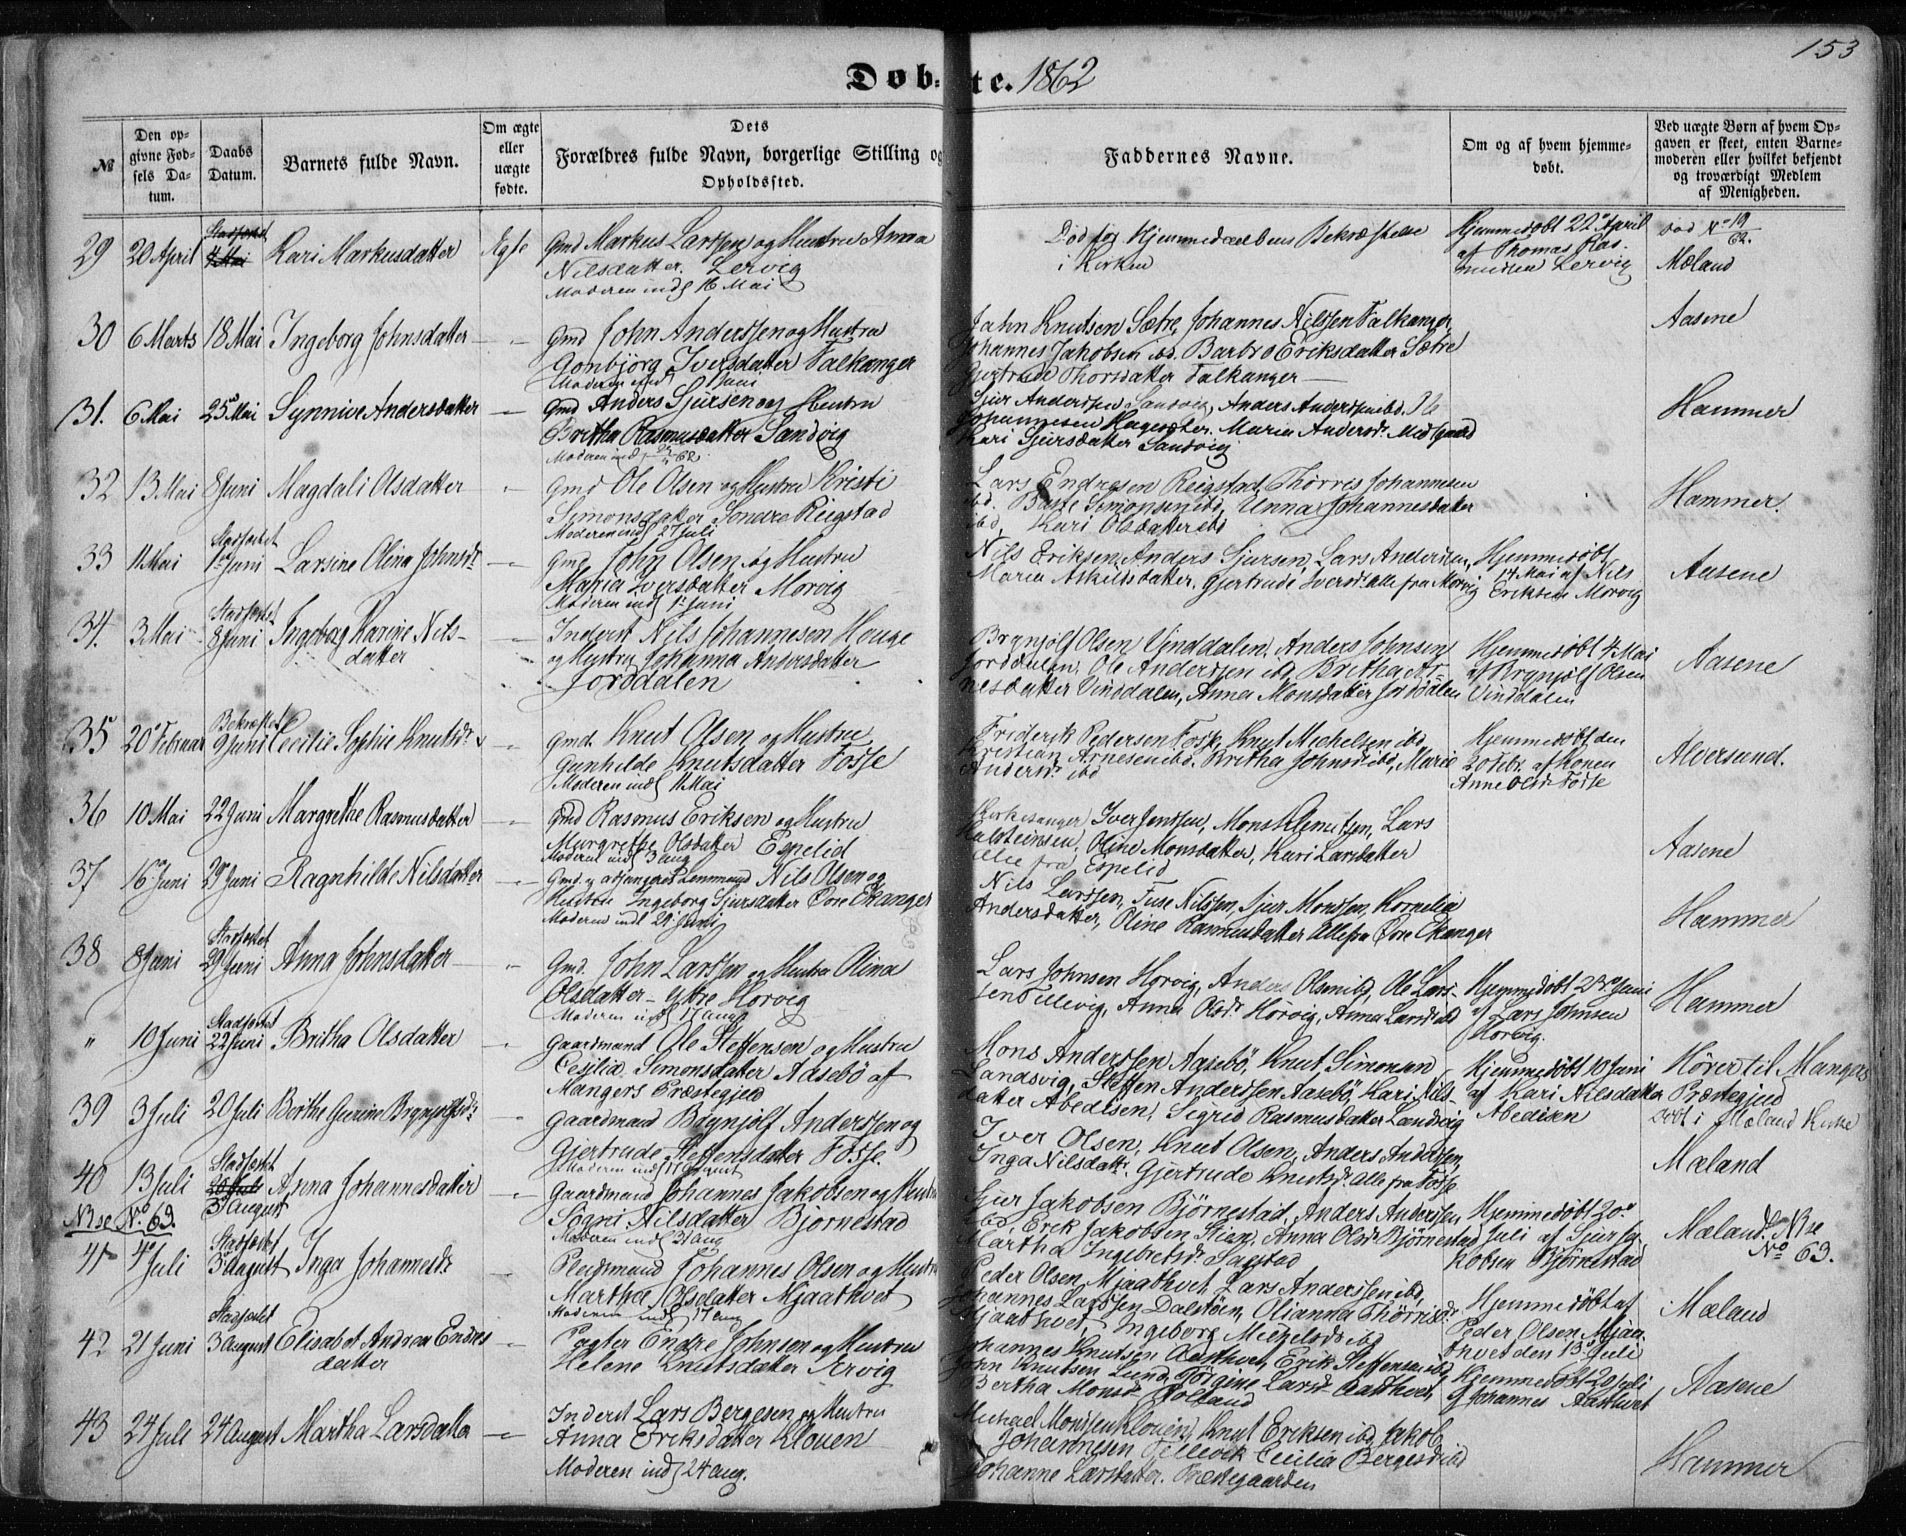 153
Døbte. 1862
№
Den opgivne Fødsels Datum.
Daabs Datum.
Barnets fulde Navn.
Om ægte eller uægte fødte.
Dets Forældres fulde Navn, borgerlige Stilling og Opholdssted.
Faddernes Navne.
Om og af hvem hjemmedøbt.
Ved uægte Børn af hvem Opgaven er skeet, enten Barnemoderen eller hvilket bekjendt og troværdigt Medlem af Menigheden.
29 20 April Stadfæstet Kari Markusdatter Ægte Gmd Markus Larssen og Hustru Anna
Nilsdatter Lervig
Moderen indl 16 Mai
Død før Hjemmedaabens Bekræftelse
i Kirken
Hjemmedøbt 22 April
af Thomas Rasmussen Lervig
Mæland
30 6 Marts 18 Mai Ingeborg Johnsdatter Gmd John Anderssen og Hustru
Gonbjörg Iversdatter Falkanger
John Knutsen Sætre, Johannes Nilssen Falkanger,
Johannes Jakobsen ibd. Barbro Eriksdatter Sætre
Gjertrude Thorsdatter Falkanger
Aasene
31. 6 Mai 25 Mai Synnive Andersdatter Gmd Anders Sjursen og Hustru
Britha Rasmusdatter Sandvig
Sjur Anderssen Sandvig, Anders Anderssen ibd. Ole
Johannesen Hagesæter. Maria Andersdr Midtgaard
Kari Sjursdatter Sandvig
Hammer
32 13 Mai 8 Juni Magdali Olsdatter Gmd Ole Olsen og Hustru Kristi
Simonsdatter Söndre Riigstad
Moderen indl 27 Juli
Lars Endresen Riigstad, Thorres Johannesen
ibd. Simonsen ibd, Unna Johannesdatter
ibd, Kari Olsdatter ibd
Hammer.
33 11 Mai Stadfæstet 1 Juni Larsine Olina Johnsdr Gmd John Olsen og Hustru
Maria Iversdatter Morvig
Moderen indl 1 Juni
Nils Eriksen, Anders Sjursen, Lars Andersen,
Maria Askildsdatter, Gjertrude Iversdr alle fra Morvig
Hjemmedøbt
14 Mai af Nils
Eriksen Morvig
Aasene
34. 3 Mai Stadfæstet 8 Juni Ingeborg Karine Nilsdatter
Inderst Nils Johannesen Houge
og Hustru Johanna Andersdatter
Jorddalen
Brynjolf Olsen Vinddalen, Anders Johnsen
Jorddalen, Ole Anderssen ibd, Britha Arnesdatter Vinddalen, Anna Monsdatter Jorddalen
Hjemmedøbt 4 Mai
af Brynjolf Olsen
Vinddalen
Aasene
35 20 Februar Bekræftet 9 Juni Cecilie Sophie Knutsdr Gmd. Knut Olsen og Hustru
Gunhilde Knutsdatter Fosse
Moderen indl 11 Mai
Friderik Pedersen Fosse, Knut Michelsen ibd,
Kristian Arnesen ibd. Britha Johnsdr ibd, Marie
Andersdr ibd
Hjemmedøbt den
20 Febr. af Konen
Anne Olsdr Fosse
Alversund.
36 10 Mai 22 Juni Margrethe Rasmusdatter Gmd Rasmus Eriksen og Hustru
Margrethe Olsdatter Espelid
Moderen indl 3 aug
Kirkesanger Iver Jenssen, Mons Knutsen, Lars
Halsteinsen, Oline Monsdatter, Kari Larsdatter
alle fra Espelid
Aasene
37 16 Juni 29 Juni Ragnhilde Nilsdatter Gmd. og Lensmand Nils Olsen og
Hustru Ingeborg Sjursdatter Øvre Ekanger
Nils Larssen, Tuse Nilssen, Sjur Monssen, Kornelia
Andersdatter, Oline Rasmusdatter Alle fra Øvre Ekanger
Hammer
38 8 Juni Stadfæstet 29 Juni Anna Johnsdatter Gmd. John Larssen og Hustru Olina
Olsdatter - Yttre Horvig
Moderen indl 17 aug
Lars Johnsen Horvig, Anders Olsen ibd, Ole Larssen Tellevig, Anna Olsdr Horvig, Anna Larsdr ibd
Hjemmedøbt Juni
af Lars Johnsen
Horvig.
Hammer
" 10 Juni Stadfæstet 22 Juni Britha Olsdatter Gaardmand Ole Steffensen og Hustru
Cecilia Simonsdatter Aasebö af
Mangers Præstegjeld
Mons Anderssen Aasebö, Knut Simonsen
Landsvig, Steffen Anderssen Aasebö, Kari Nilsdatter Abedisen, Sigrid Rasmusdatter Landsvig
Hjemmedøbt 10 Juni
af Kari Nilsdatter
Abedisen
Hörer til Mangers
Præstegjeld
døbt i Mæland Kirke
39 3 Juli 20 Juli Berthe Gurine Brynjolfsdr Gaardmand Brynjolf Anderssen og
Gjertrude Steffensdatter Fosse.
Moderen indl 17 august
Iver Olsen, Knut Olsen, Anders Anderssen,
Inga Nilsdatr. Gjertrude Knutsdr. alle fra Fosse
Mæland
40 13 Juli Stadfæstet 3 August Anna Johannesdatter Gaardmand Johannes Jakobsen og Hustru
Sögni Nilsdatter Björnestad
Moderen indl 31 aug
Sjur Jakobsen Björnestad, Anders Anderssen
ibd Erik Jakobsen Steen, Anna Olsdr Björnestad
Martha Ingebretsdr Sagstad
Hjemmedøbt 20
Juli af Sjur Jakobsen Björnestad
Mæland. NB se
No 63.
NB se No 63.
41 4 Juli Stadfæstet 3 August Inga Johannesdr Pladsmand Johannes Olsen og Hustru
Martha Olsdatter Mjaathvet
Moderen indl 17 aug
Peder Olsen Mjaathvet, Lars Anderssen ibd,
Johannes Larssen Dalstöen, Olianna Thörrisdr
Mjaathvet, Ingeborg Mikkelsdr ibd
Hjemmedøbt af
Peder Olsen Mjaathvet den 13 Juli
Mæland
42 21 Juni Stadfæstet 3 August Elisabet Andrea Endresdatter
Pagter Endre Johnsen og Hustru
Helene Knutsdatter Arvig
Johannes Knutsen Aasthvet, Erik Steffensen ibd,
John Knutsen Lund, Jörgine Larsdr Aasthvet,
Bertha Monsdr
Hjemmedøbt 20 Juli
af Johannes Aasthvet
Aasene
43 24 Juli 24 August Martha Larsdatter Inderst Lars Bergesen og Hustru
Anna Eriksdatter Kloven
Moderen indl 24 aug.
Michael Monssen Kloven, Knut Eriksen ibd, Jakob
Johannesen Tellevik Cecilia Bergesdr ibd
Johanne Larsdatter. Præstegaarden
Hammer